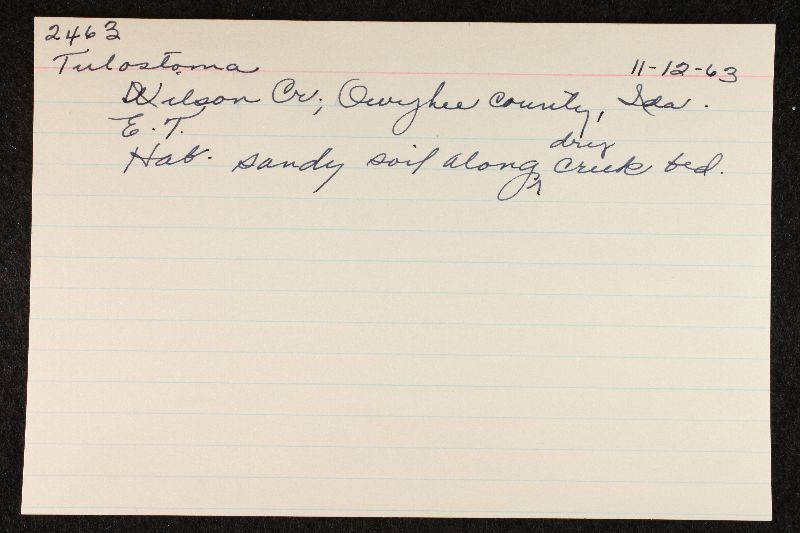 2463
Tulostoma 11-12-63
Wilson Cr, Owyhee County, Ida.
E. T.
Hab. sandy soil along dry creek bed.